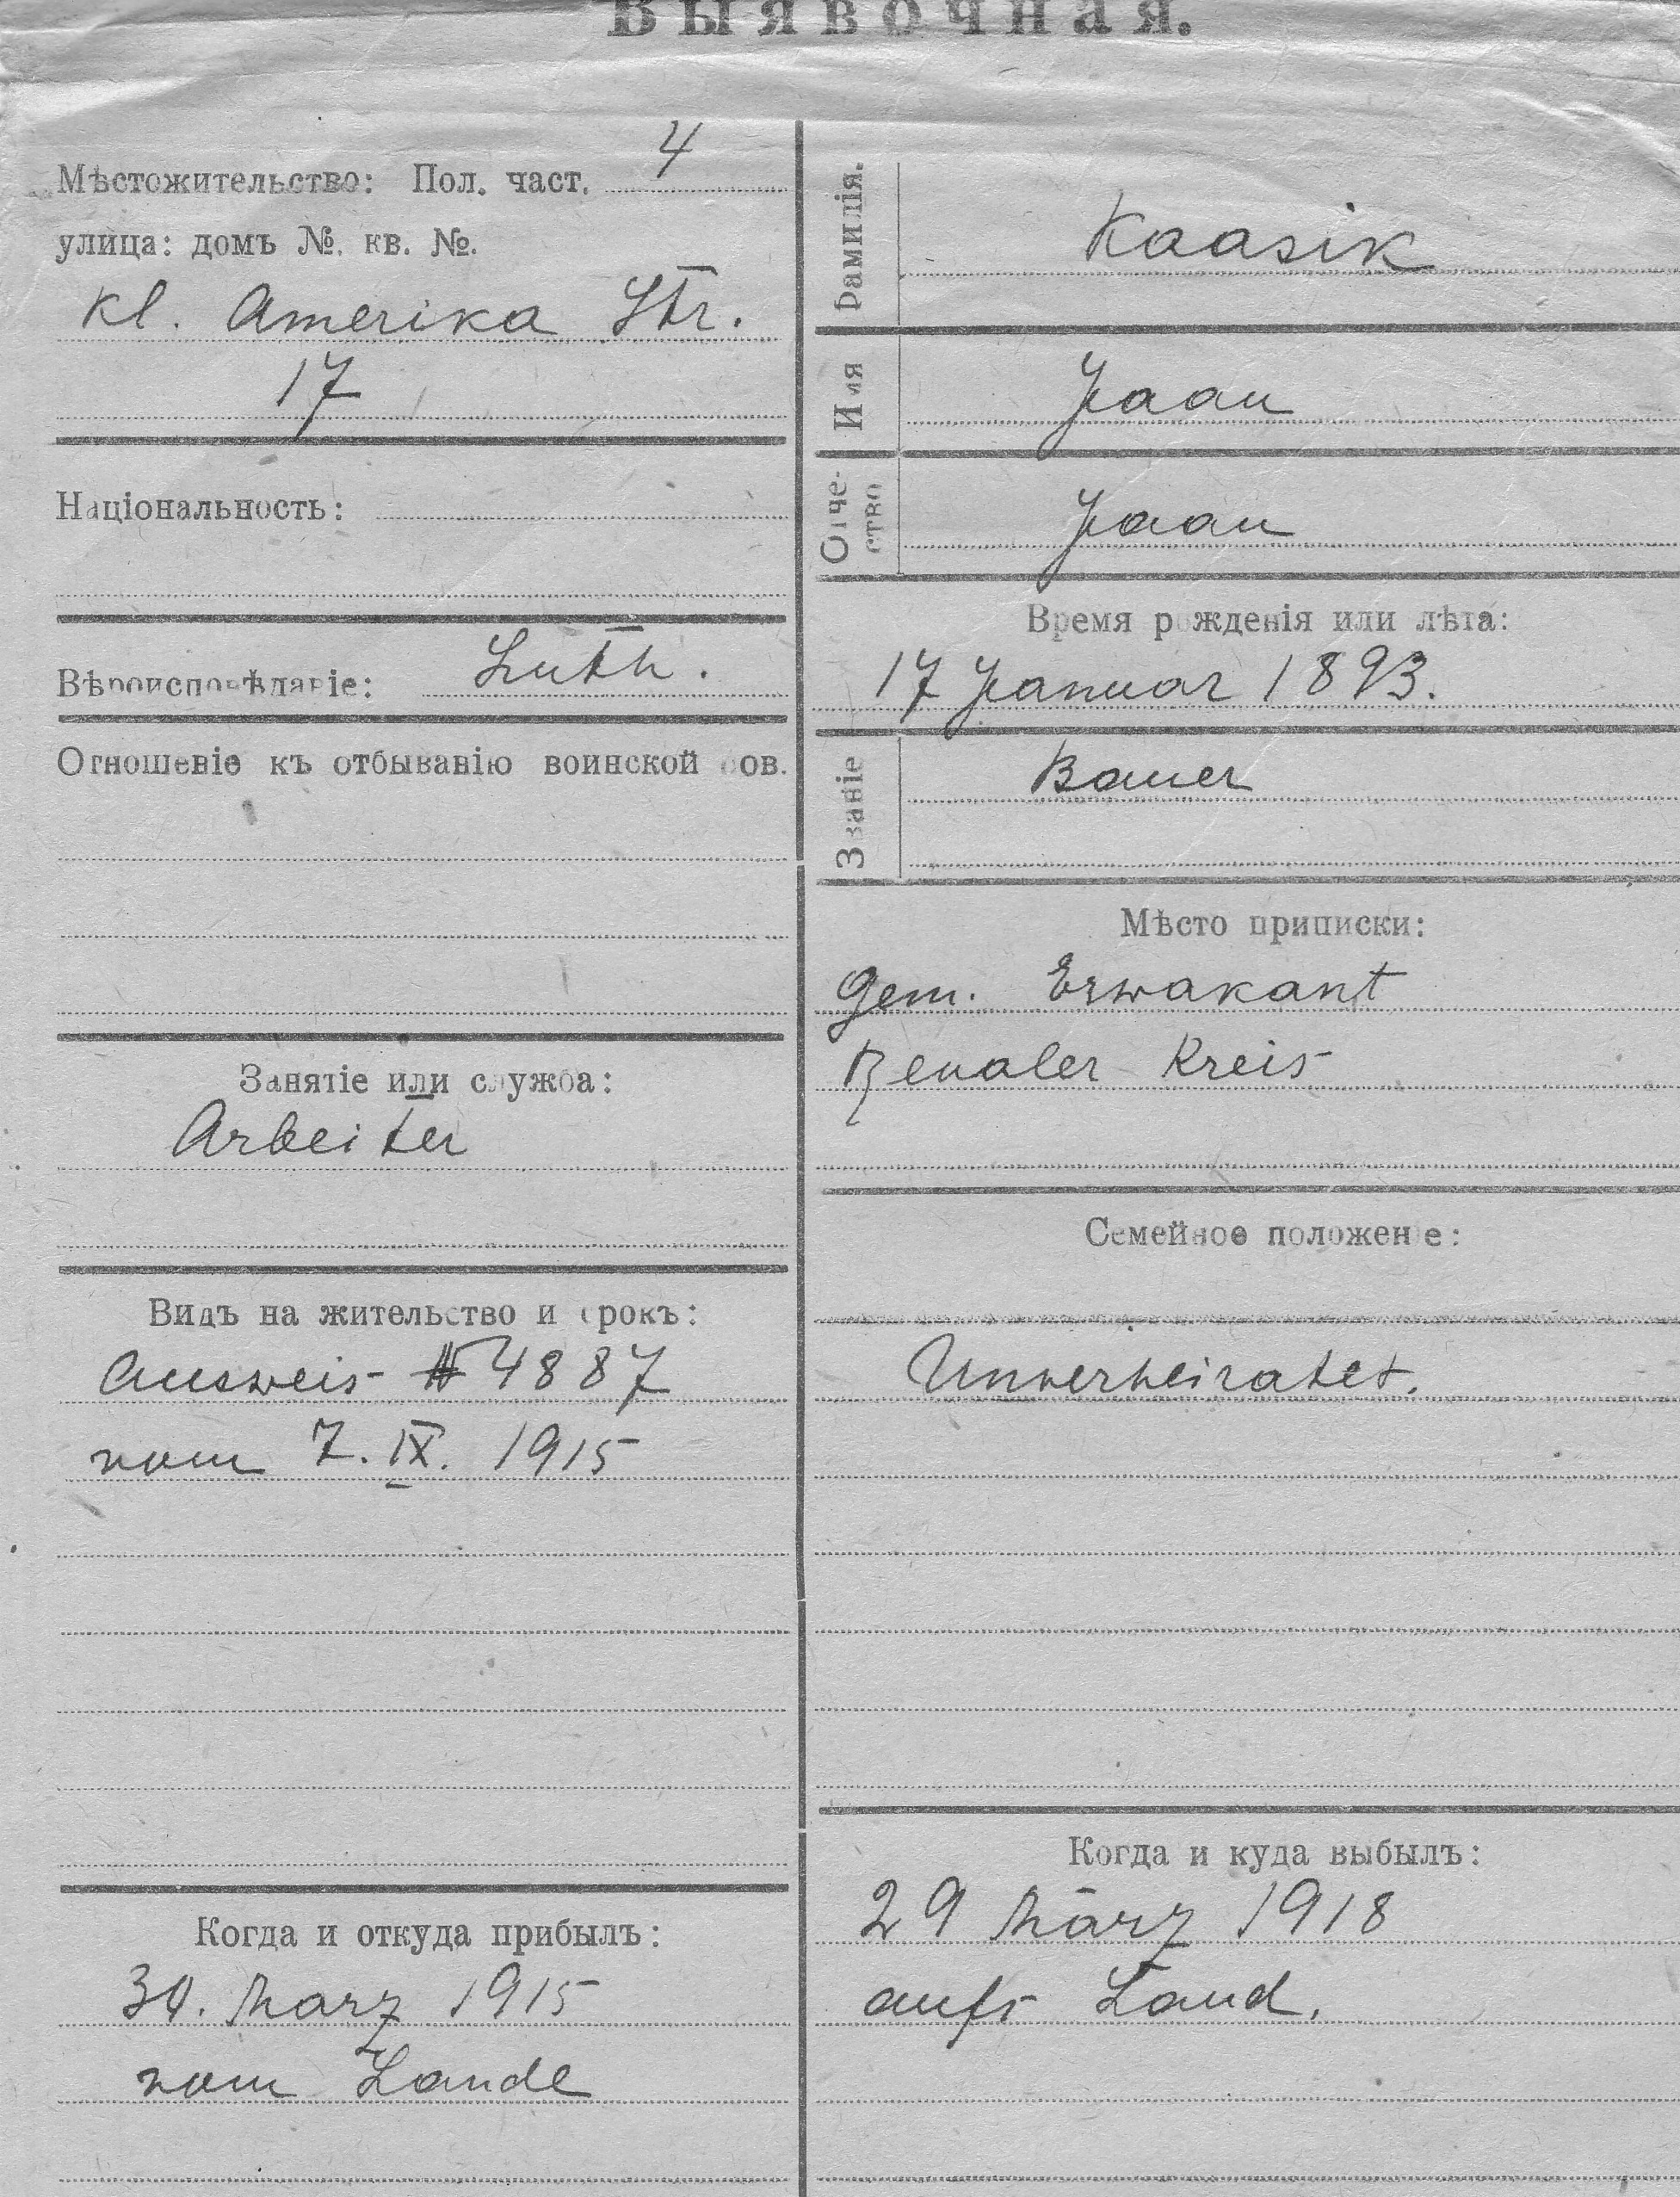 Выявочная.
Мѣстожительство: Пол. част. 4
улица: домъ №. кв. №.
Kl. Amerika Str.
17
Національность:
Вѣроисповѣданіе: Luth.
Отношеніе къ отбыванію воинской пов.
Занятіе или служба:
Arbeiter
Видъ на жительство и срокъ:
Ausweis № 4887
vom 7. IX. 1915
Когда и откуда прибылъ:
30. März 1915
vom Lande
Фамилія. Kaasik
Имя Jaan
Отчество Jaan
Время рожденія или лѣта:
17 Januar 1893.
Званіе Bauer
Мѣсто приписки:
Gem. Erwakant
Revaler Kreis
Семейное положение:
Unverheiratet.
Когда и куда выбылъ:
29 März 1918
aufs Land.